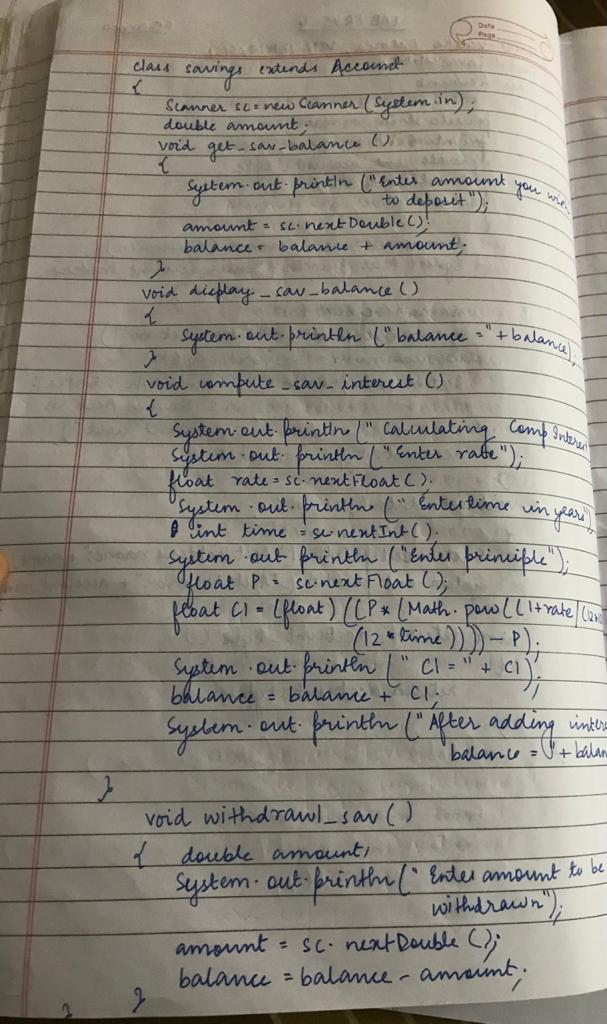 Date
Page
class savings extends Account
{
Scanner sc = new Scanner (System.in);
double amount;
void get_sav_balance ()
{
System.out.println ("Enter amount you
to deposit");
amount = sc.nextDouble();
balance = balance + amount;
}
void display_sav_balance ()
{
System.out.println ("balance =" + balance);
}
void compute_sav_interest ()
{
System.out.println (" Calculating Comp
System.out.println ("Enter rate");
float rate = sc.nextFloat();
System.out.println (" Enter time in years"
int time = sc.nextInt();
System.out.println ("Enter principle");
float P = sc.nextFloat();
float CI = (float) ((P * (Math.pow((1+rate/(
(12 * time)))) - P);
System.out.println (" CI = " + CI);
balance = balance + CI;
System.out.println ("After adding
balance = " +
}
void withdrawl_sav ()
{ double amount;
System.out.println (" Enter amount to be
withdrawn");
amount = sc.nextDouble();
balance = balance - amount;
} }